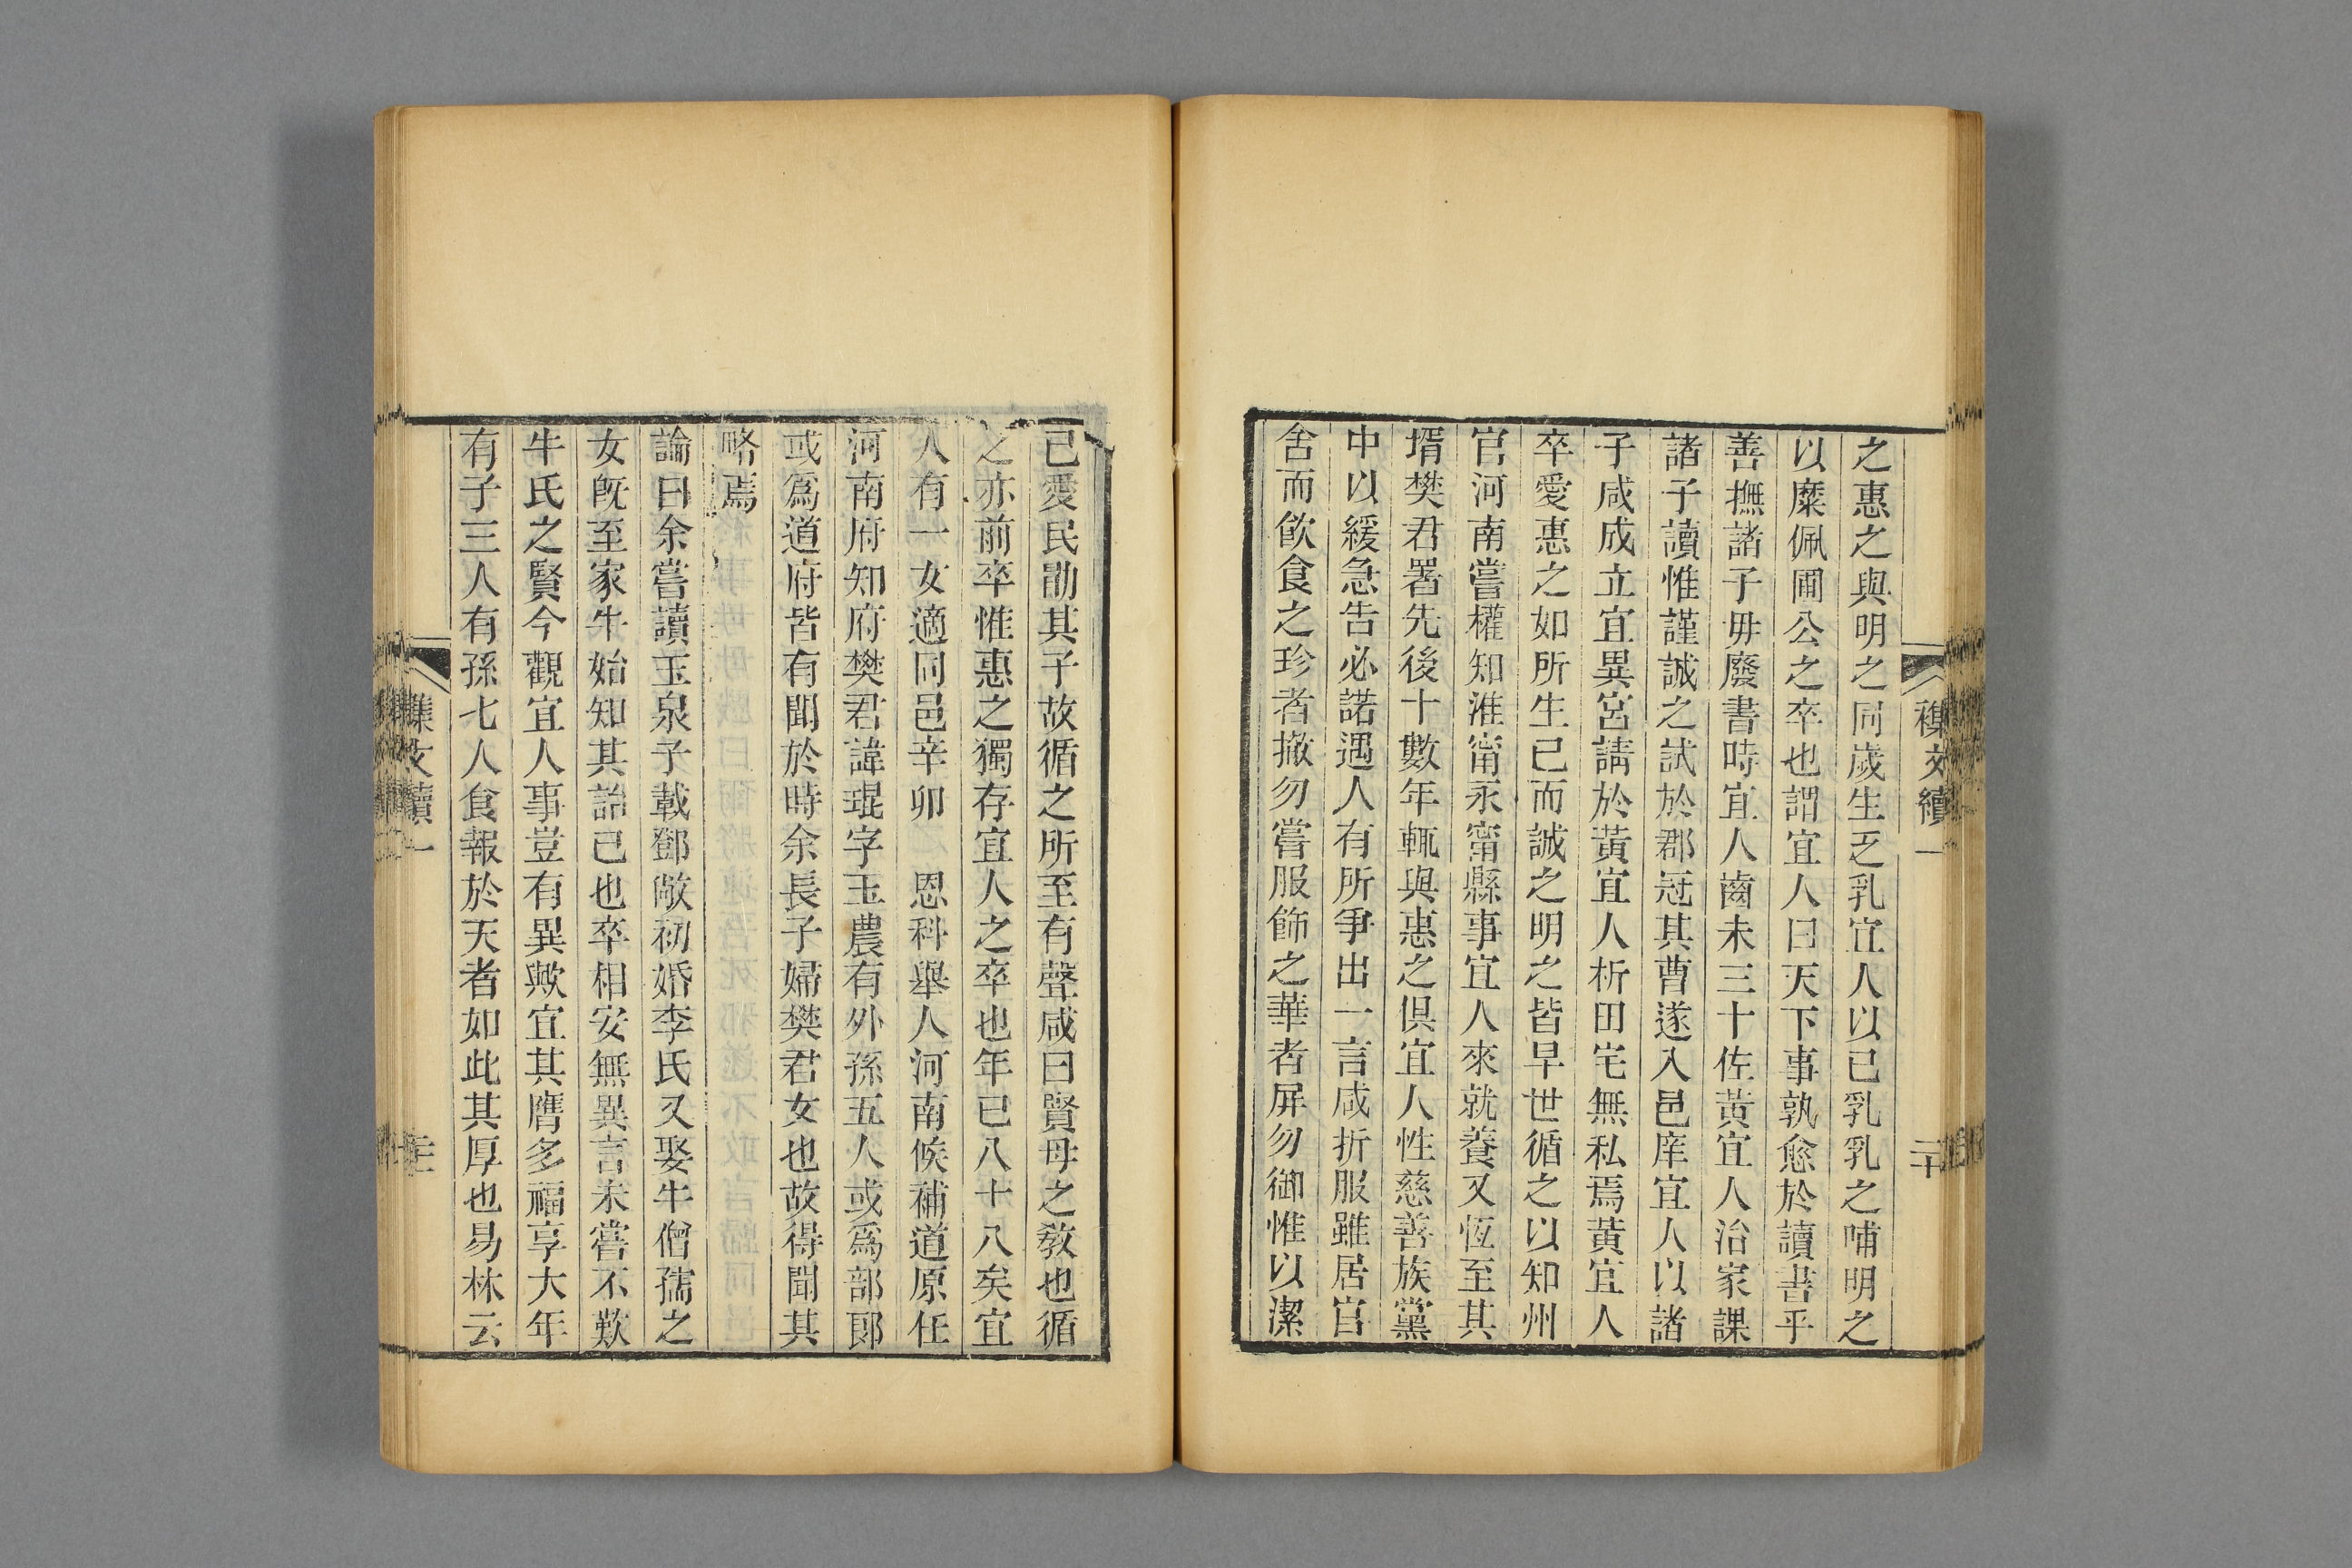 襍文續一
二十
之惠之與明之同歲生乏乳宜人以已乳乳之哺明之
以糜佩圃公之卒也謂宜人曰天下事孰愈於讀書乎
善撫諸子毋廢書時宜人齒未三十佐黃宜人治家課
諸子讀惟謹誠之試於郡冠其曹遂入邑庠宜人以諸
子咸成立宜異宮請於黃宜人析田宅無私焉黃宜人
卒愛惠之如所生已而誠之明之皆早世循之以知州
官河南嘗權知淮甯永甯縣事宜人來就養又恆至其
壻樊君署先後十數年輒與惠之俱宜人性慈善族黨
中以緩急告必諾遇人有所爭出一言咸折服雖居官
舍而飲食之珍者撤勿嘗服飾之華者屏勿御惟以潔
己愛民勖其子故循之所至有聲咸曰賢母之教也循
之亦前卒惟惠之獨存宜人之卒也年已八十八矣宜
人有一女適同邑辛卯 恩科舉人河南候補道原任
河南府知府樊君諱琨字玉農有外孫五人或爲部郎
或爲道府皆有聞於時余長子婦樊君女也故得聞其
略焉
論曰余嘗讀玉泉子載鄧敞初婚李氏又娶牛僧孺之
女旣至家牛始知其詒己也卒相安無異言未嘗不歎
牛氏之賢今觀宜人事豈有異歟宜其膺多福享大年
有子三人有孫七人食報於天者如此其厚也易林云
襍文續一